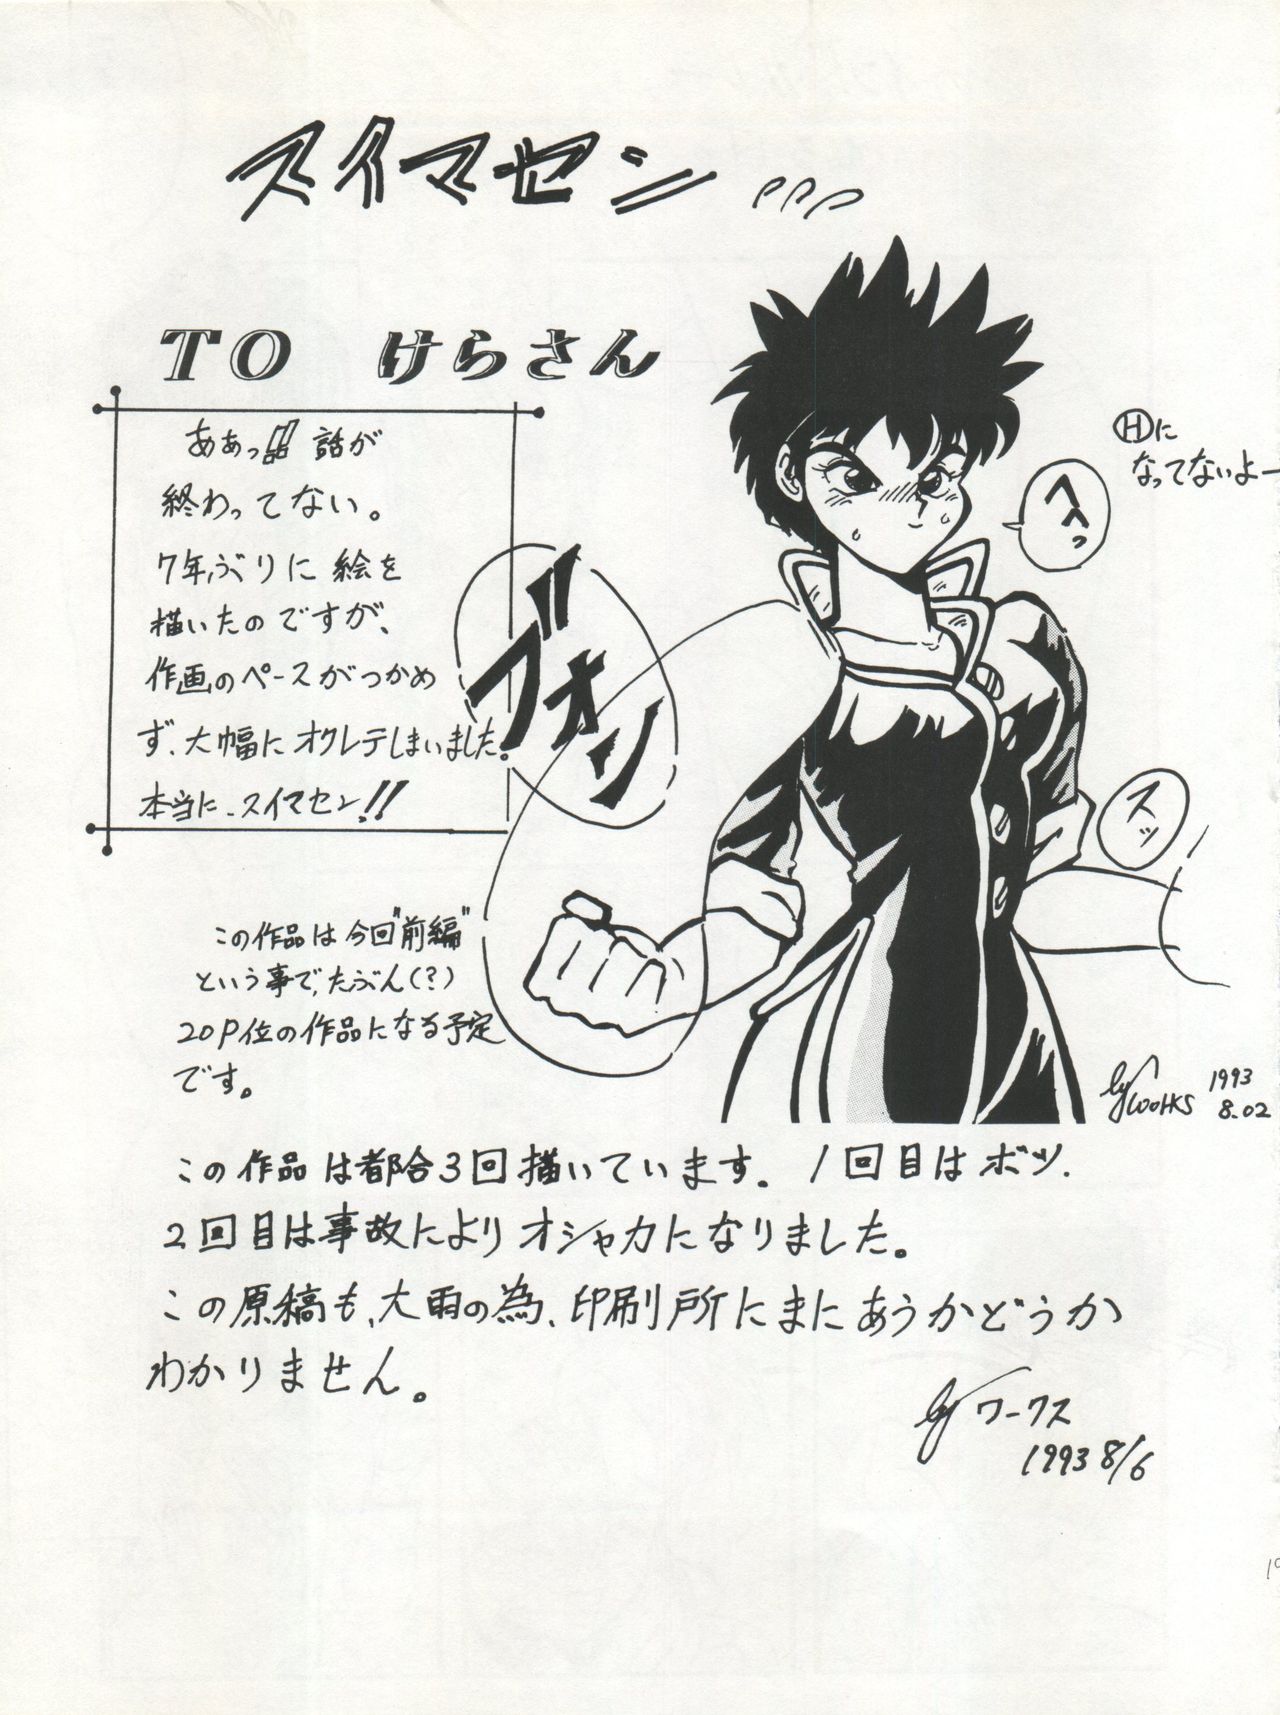 スイマセン
TO けらさん
ああっ!! 話が
終わってない。
7年ぶりに絵を
描いたのですが、
作画のペースがつかめ
ず、大幅にオクレテしまいました。
本当に、スイマセン!!
Ⓗに
なってないよー
ヘヘっ
ブオン
スッ
この作品は今回"前編"
という事で、たぶん(?)
20P位の作品になる予定
です。
by WORKS 1993
8.02
この作品は都合3回描いています。1回目はボツ、
2回目は事故によりオシャカになりました。
この原稿も、大雨の為、印刷所にまにあうかどうか
わかりません。
by ワークス
1993 8/6